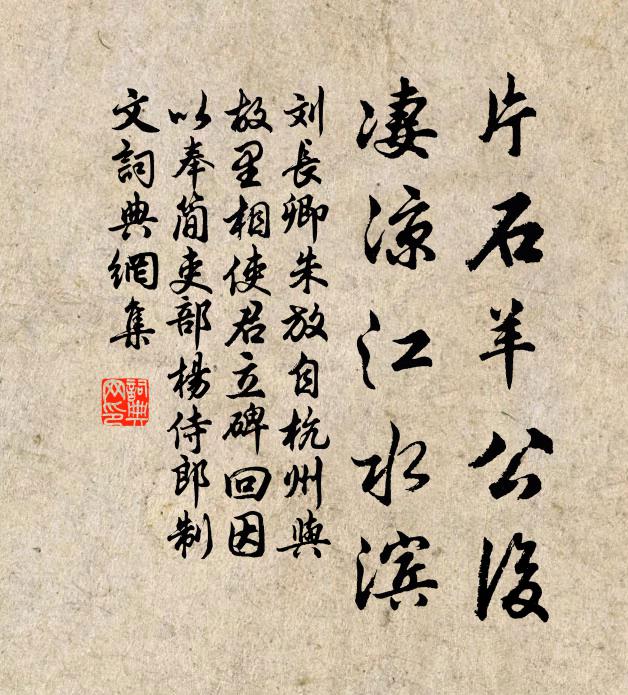 片石羊公後
凄涼江水滨
刘長卿朱放自杭州與
故里相使君立碑回因
以奉简吏部楊侍郎制
文詞典網集
詞典
网印